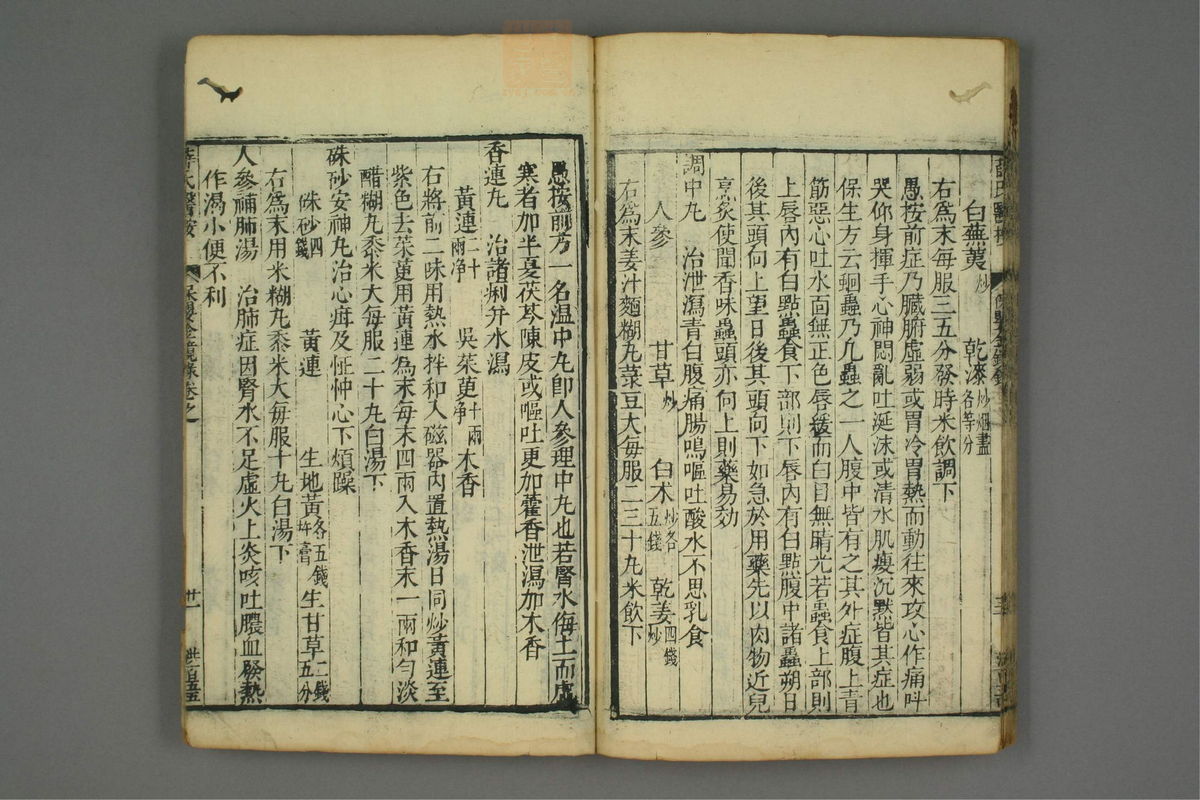 白蕪荑炒　乾漆炒烟盡各等分
右爲末每服三五分發時米飲調下
愚按前症乃臟腑虛弱或胃冷胃熱而動往來攻心作痛叫
哭仰身揮手心神悶亂吐涎沫或清水肌瘦沉默皆其症也
保生方云蛔蟲乃九蟲之一人腹中皆有之其外症腹上青
筋惡心吐水面無正色唇緩而白目無睛光若蟲食上部則
上唇內有白點蟲食下部則下唇內有白點腹中諸蟲朔日
後其頭向上望日後其頭向下如急於用藥先以肉物近兒
烹炙使聞香味蟲頭亦向上則藥易効
調中丸　治泄瀉青白腹痛腸鳴嘔吐酸水不思乳食
人參　甘草炒　白术炒各五錢　乾姜四錢炒
右爲末姜汁麵糊丸菉豆大每服二三十丸米飲下
愚按前方一名温中丸卽人參理中丸也若腎水侮土而虛
寒者加半夏茯苓陳皮或嘔吐更加藿香泄瀉加木香
香連丸　治諸痢幷水瀉
黃連二十兩净　吳茱萸十兩净　木香
右將前二味用熱水拌和入磁器內置熱湯日同炒黃連至
紫色去茱萸用黃連爲末每末四兩入木香末一兩和匀淡
醋糊丸黍米大每服二十丸白湯下
硃砂安神丸治心疳及怔忡心下煩躁
硃砂四錢　黃連　生地黃各五錢　生甘草二錢五分
右爲末用米糊丸黍米大每服十丸白湯下
人參補肺湯　治肺症因腎水不足虛火上炎咳吐膿血發熱
作渴小便不利
薛氏醫按　保嬰金鏡錄卷之　廿一